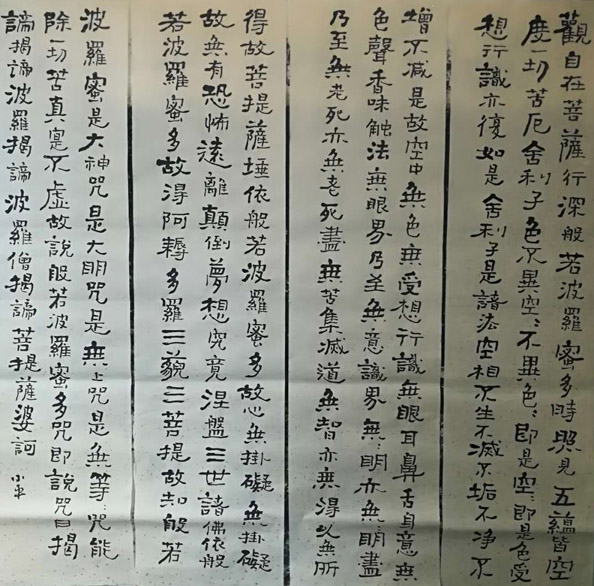 觀自在菩薩行深般若波羅蜜多時照見五蘊皆空
度一切苦厄舍利子色不異空〻不異色〻即是空〻即是色受
想行識亦復如是舍利子是諸法空相不生不滅不垢不净不
增不减是故空中無色無受想行識無眼耳鼻舌身意無
色聲香味触法無眼界乃至無意識界無明亦無明盡
乃至無老死亦無老死盡無苦集滅道無智亦無得以無所
得故菩提薩埵依般若波羅蜜多故心無掛礙無掛礙
故無有恐怖遠離顛倒夢想究竟涅盤三世諸佛依般
若波羅蜜多故得阿耨多羅三藐三菩提故知般若
波羅蜜是大神咒是大明咒是無上咒是無等〻咒能
除切苦真寔不虛故說般若波羅蜜多咒即說咒曰揭
諦揭諦波羅揭諦波羅僧揭諦菩提薩婆訶
小平